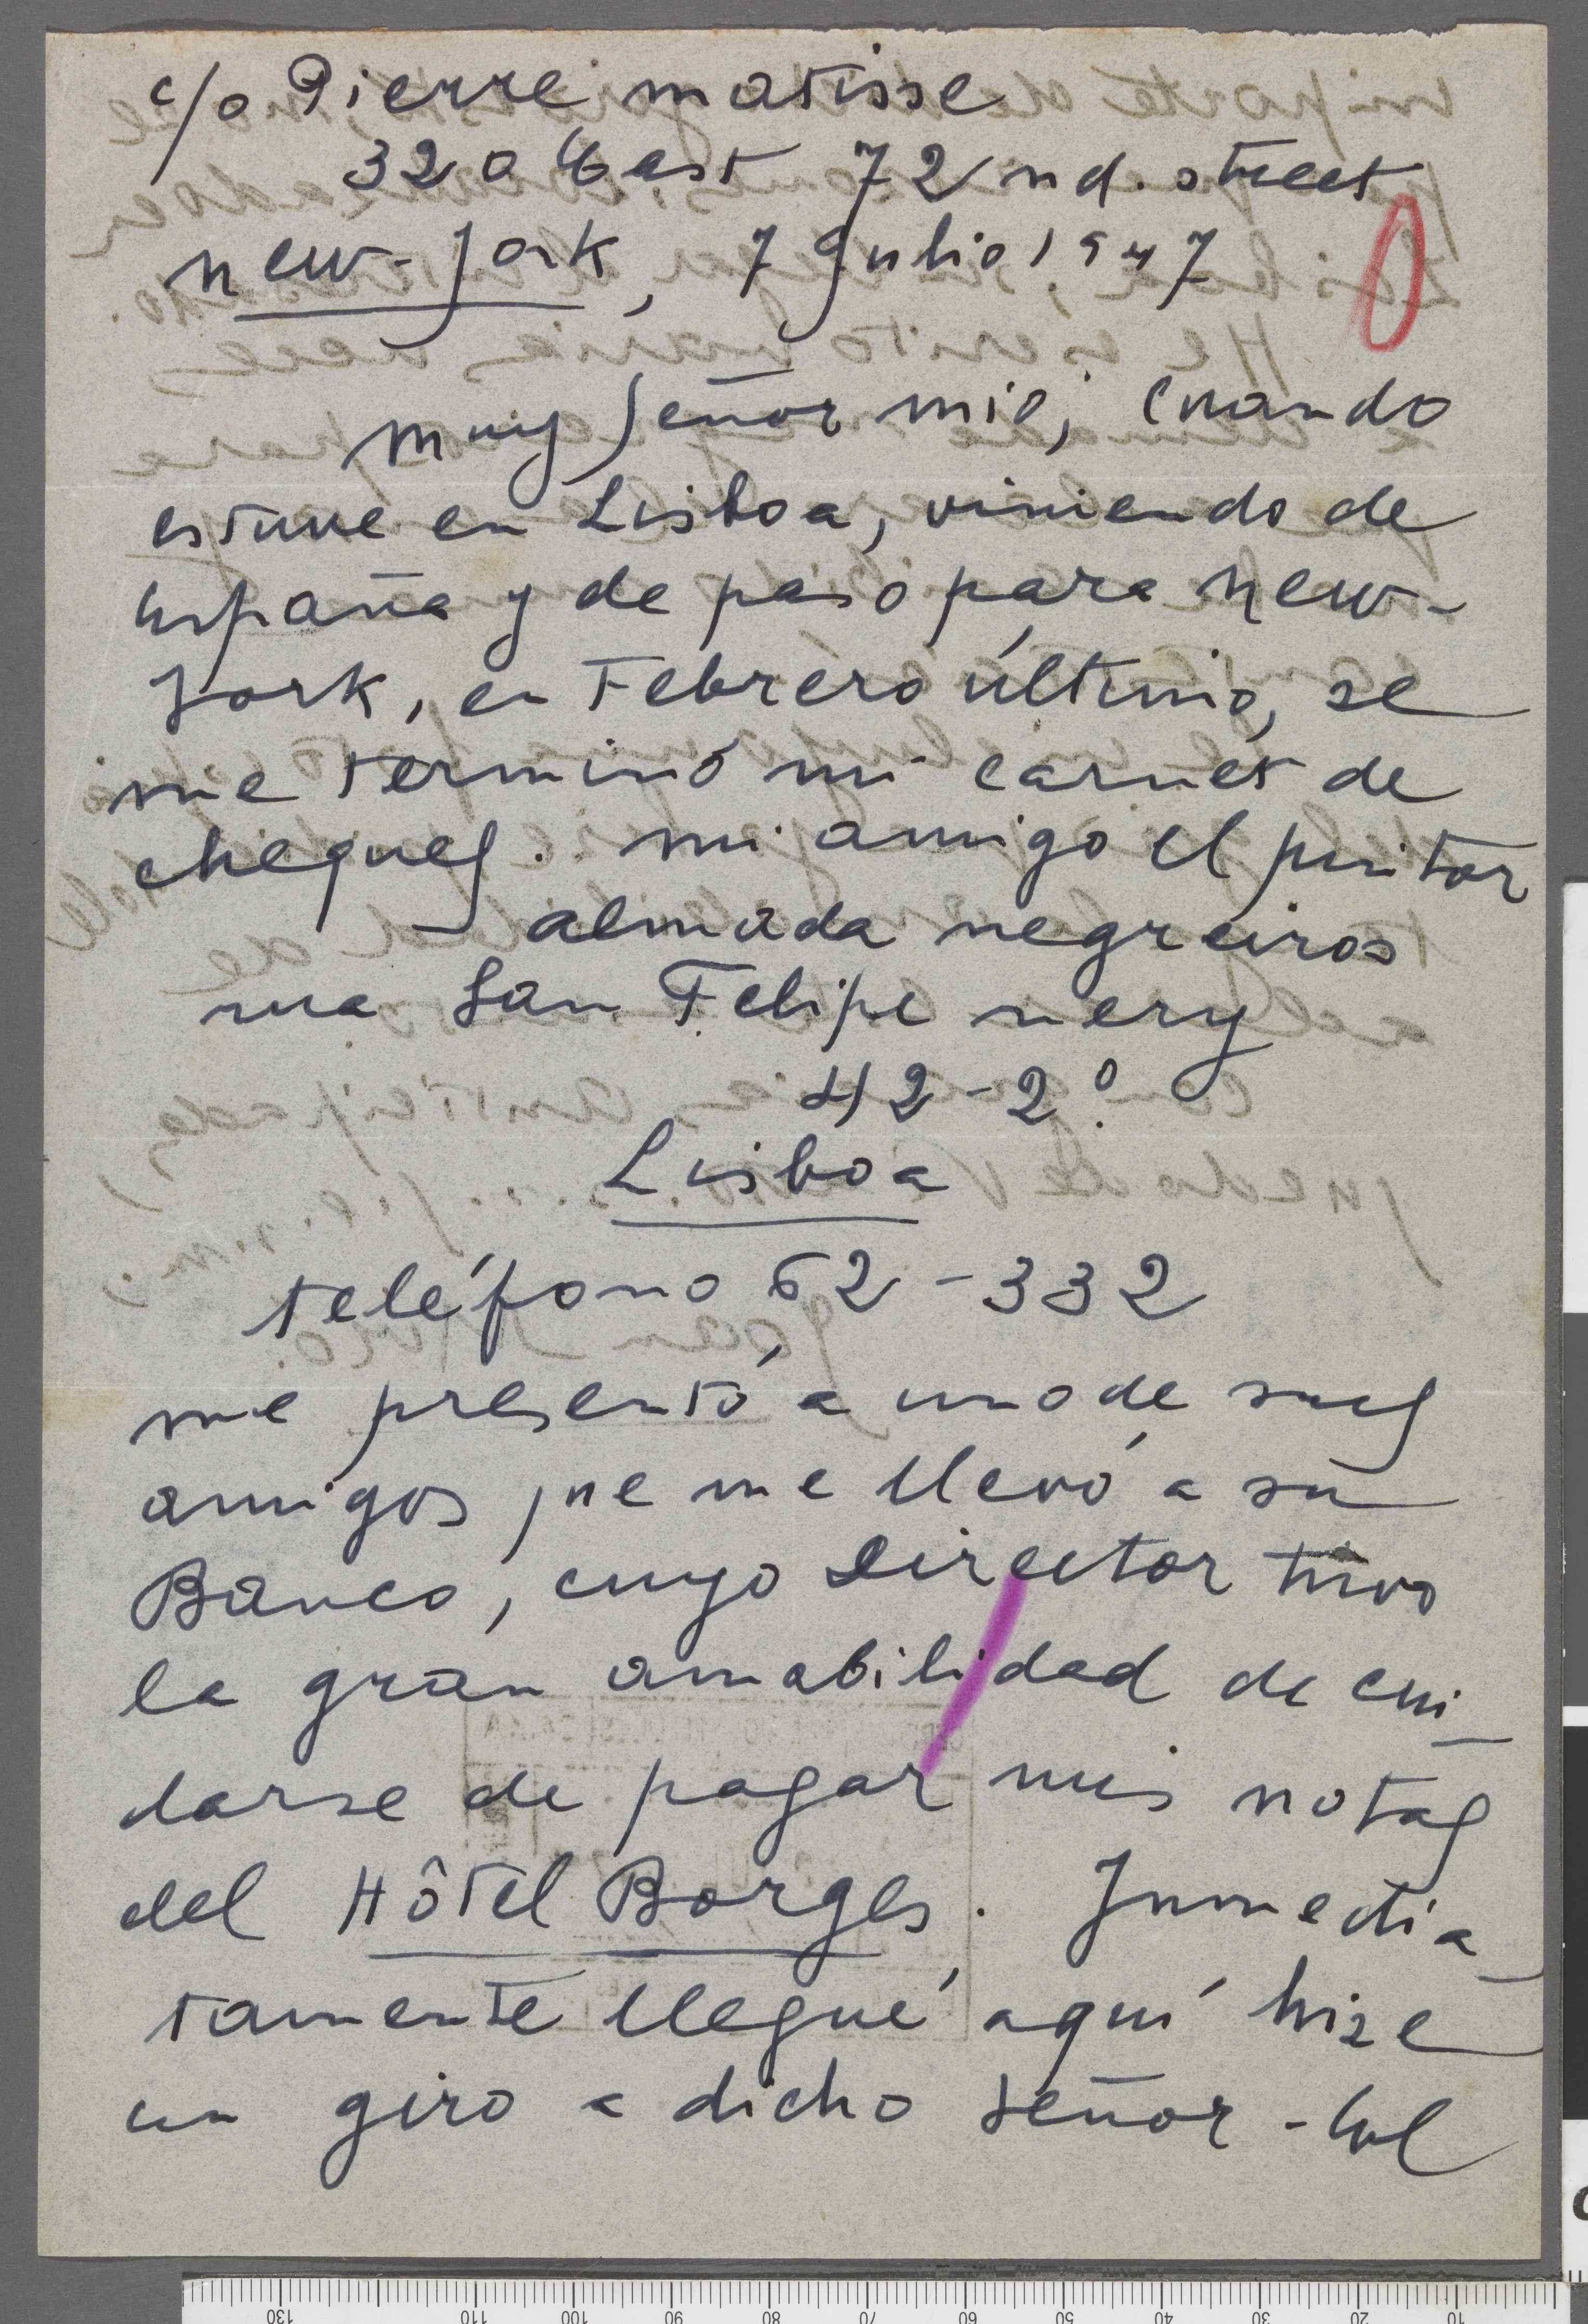 c/o Pierre matisse
320 East 72 nd. street
new-York, 7 Julio 1947
muy Señor mio; Cuando
estuve en Lisboa, viniendo de
España y de paso para New-
York, en Febrero último, se
me terminó mi carnet de
cheques. mi amigo el pintor
almada negreiros
rua San Felipe nery
42-2º
Lisboa
teléfono 62-332
me presentó a uno de sus
amigos que me llevó a su
Banco, cuyo Director tuvo
la gran amabilidad de cui-
darse de pagar mis notas
del Hôtel Borges. Inmedia-
tamente llegué aquí hize
un giro a dicho Señor - el